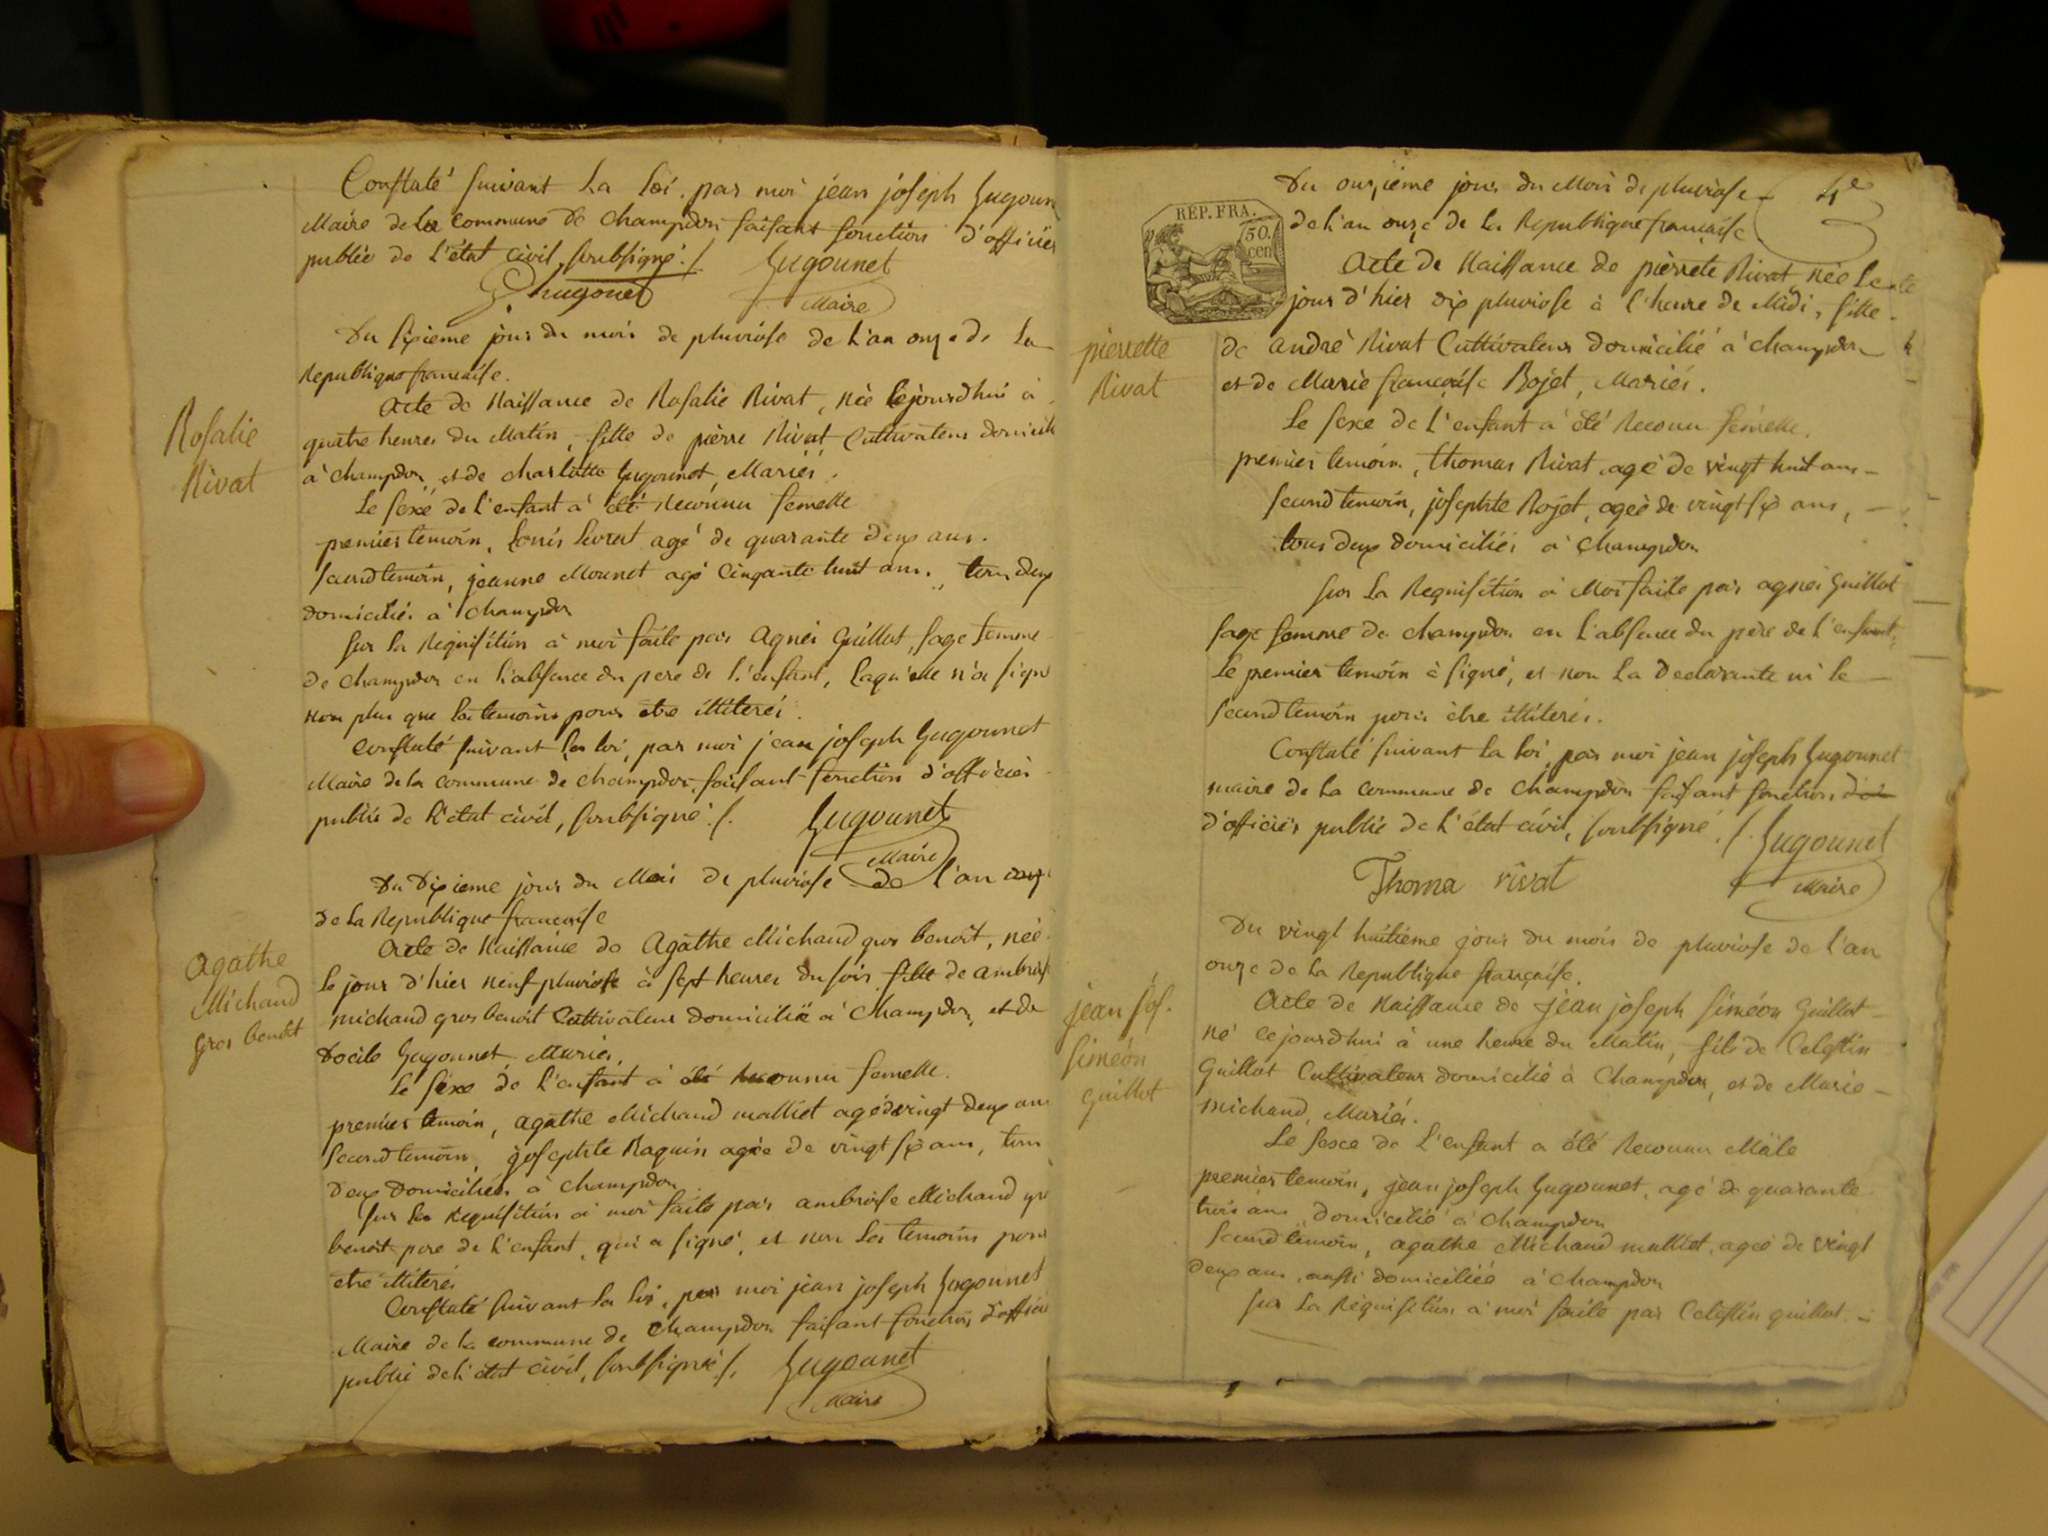 Constaté suivant la loi, par moi jean joseph Gugoun
Maire de la commune de champdor faisant fonction d'officier
public de l'état civil, soubsigné ./.
Gugounet
Maire
hugonet
Du sixieme jour du mois de pluviose de l'an onze de la
Republique francaise.
Rosalie
Rivat
Acte de Naissance de Rosalie Rivat, née cejourdhui à
quatre heures du Matin, fille de pièrre Rivat Cultivateur domicilié
à champdor, et de charlotte Gugounet, Mariés.
Le sexe de l'enfant à été reconnu femelle
premier temoin, Louis Livrat agé de quarante deux ans.
second temoin, jeanne Mounet agé cinquante huit ans, tous deux
domiciliés à champdor
sur la requisition à moi faite par Agnès Guillot, sage femme
de champdor en l'absence du pere de l'enfant, laquelle n'a signé
non plus que les temoins pour etre illiterés.
Constaté suivant la loi, par moi jean joseph Gugounet
Maire de la commune de champdor, faisant fonction d'officier
public de l'état civil, soubsigné ./.
Gugounet
Maire
Du dixieme jour du Mois de pluviose de l'an onze
de la Republique francaise
Agathe
Michaud
gros benoit
Acte de Naissance de Agathe Michaud gros benoit, née
le jour d'hier neuf pluviose à sept heures du soir, fille de ambroise
michaud gros benoit Cultivateur domicilié à Champdor, et de
Docile Gugounet Mariés.
Le sexe de l'enfant à été reconnu femelle.
premier temoin, agathe Michaud malliet agé de vingt deux ans
second temoin, josephte Raquin agée de vingt six ans, tous
deux domiciliés à champdor
sur la requisition à moi faite par ambroise Michaud gros
benoit pere de l'enfant, qui a signé, et non les temoins pour
etre illiterés
Constaté suivant la loi, par moi jean joseph Gugounet
Maire de la commune de champdor faisant fonction d'officier
public de l'état civil, soubsigné ./.
Gugounet
Maire
4e
REP. FRA.
50.
cen
Du onzième jour du Mois de pluviose
de l'an onze de la Republique francaise
pierrette
Rivat
Acte de Naissance de pièrrete Rivat née le
jour d'hier dix pluviose à l'heure de Midi, fille
de andré Rivat Cultivateur domicilié à champdor
et de Marie francoise Rojet, Mariés.
Le sexe de l'enfant à été reconnu fémelle.
premier temoin, thomas Rivat, agé de vingt huit ans
second temoin, josephte Rojet, agée de vingt six ans,
tous deux domiciliés à champdor
sur la Requisition à Moi faite par agnès Guillot
sage femme de champdor en l'absence du pere de l'enfant,
le premier temoin à signé, et non la declarante ni le
second temoin pour être illiterés.
Constaté suivant la loi, par moi jean joseph Gugounet
maire de la commune de champdor faisant fonction
d'officier public de l'état civil, soubsigné ./.
Gugounet
Maire
Thoma rivat
Du vingt huitième jour du mois de pluviose de l'an
onze de la Republique française.
jean jos.
siméon
guillot
Acte de Naissance de jean joseph siméon Guillot
né cejourdhui à une heure du Matin, fils de Celestin
Guillot Cultivateur domicilié à Champdor, et de Marie
michaud, Mariés.
Le sexce de l'enfant a été Reconnu Mâle
premier temoin, jean joseph Gugounet, agé de quarante
trois ans, domicilié à champdor
second temoin, agathe Michaud malliet, agée de vingt
deux ans, aussi domiciliée à champdor
sur la requisition à moi faite par Celestin guillot